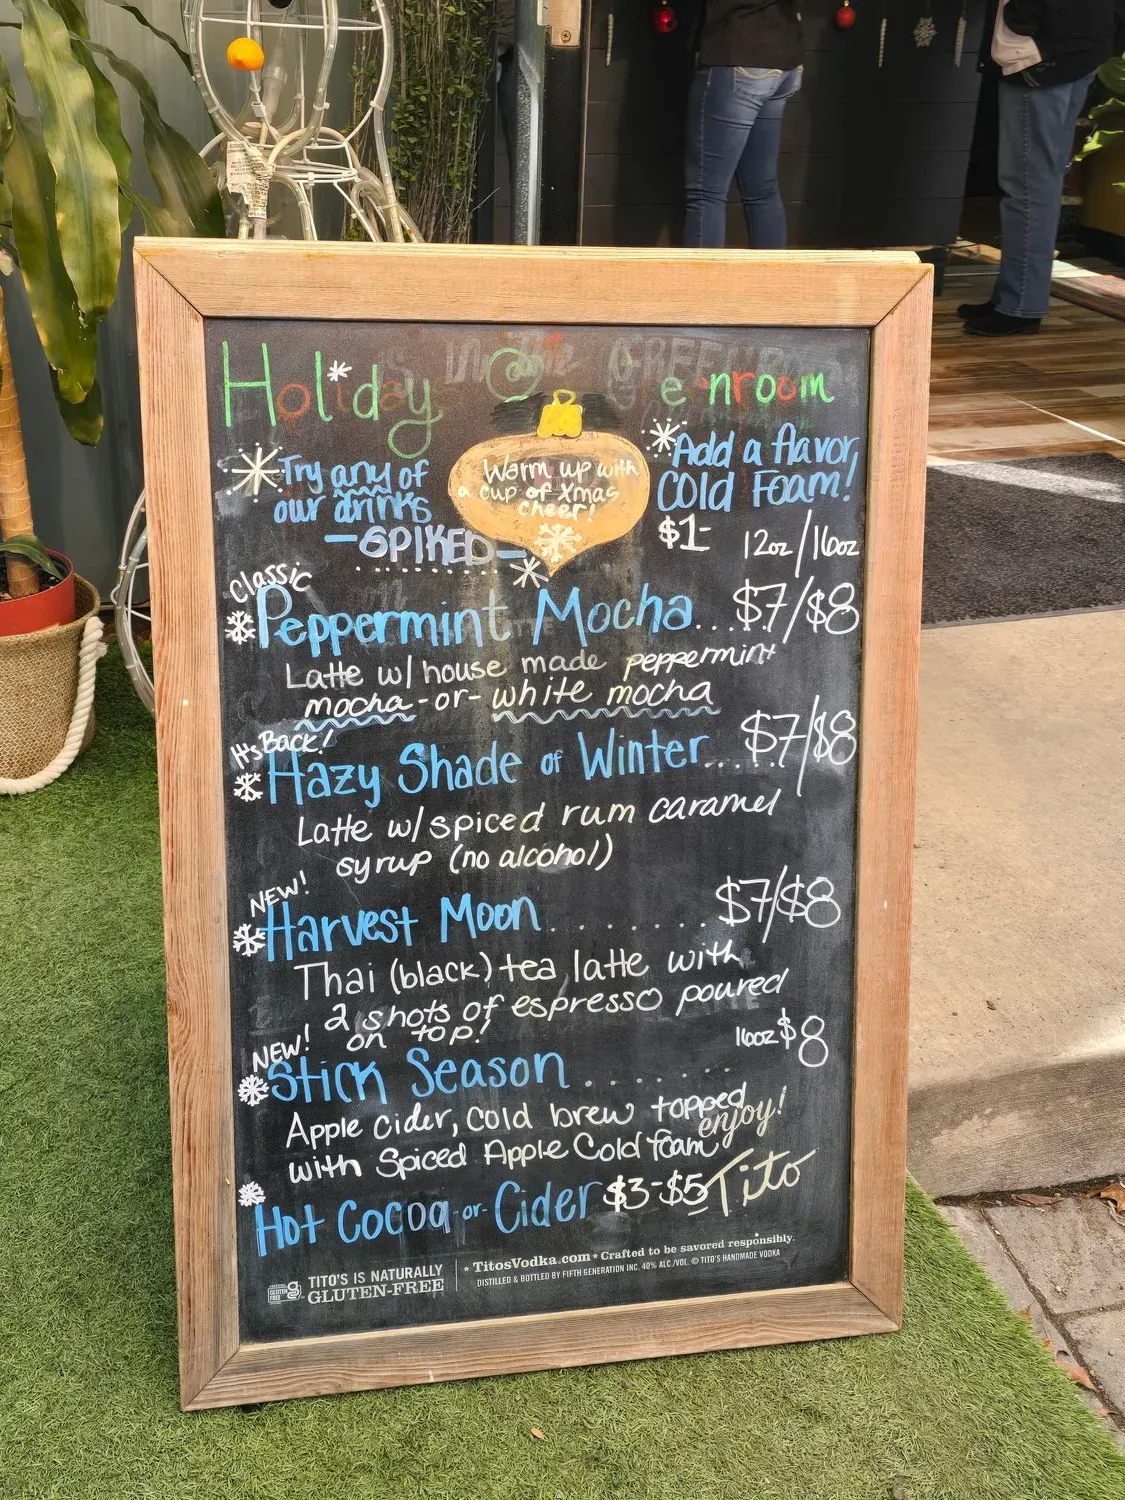 Holiday @ Greenroom
Try any of
our drinks
-SPIKED-
Warm up with
a cup of Xmas
cheer!
Add a flavor,
COLD FOAM!
$1-
12oz/16oz
Classic
Peppermint Mocha...$7/$8
Latte w/ house made peppermint
mocha -or- white mocha
It's Back!
Hazy Shade of Winter...$7/$8
Latte w/ spiced rum caramel
syrup (no alcohol)
NEW!
Harvest Moon........$7/$8
Thai (black) tea latte with
2 shots of espresso poured
on top!
NEW!
Stick Season.......16oz $8
Apple cider, cold brew topped
with Spiced Apple Cold foam
enjoy!
Hot Cocoa -or- Cider $3-$5
Tito
TITO'S IS NATURALLY
GLUTEN-FREE
* TitosVodka.com * Crafted to be savored responsibly.
DISTILLED & BOTTLED BY FIFTH GENERATION INC. 40% ALC./VOL. © TITO'S HANDMADE VODKA